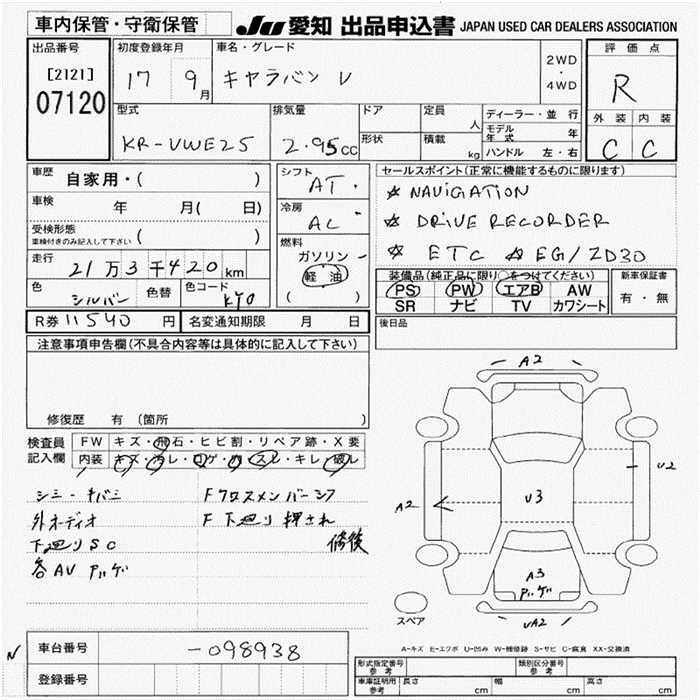 車内保管・守衛保管
JU 愛知 出品申込書 JAPAN USED CAR DEALERS ASSOCIATION
出品番号
[2121]
07120
初度登録年月
17 9月
車名・グレード
キャラバン V
2WD
・
4WD
評価点
R
外装 内装
C C
型式
KR-VWE25
排気量
2.95cc
ドア
形状
定員
人
積載
kg
ディーラー・並行
モデル年式 年
ハンドル 左・右
車歴 自家用・( )
車検 年 月( 日)
受検形態
車検付きのみ記入して下さい ( )
走行 21万3千420km
色 シルバー 色替 色コード KY0
シフト
AT・
冷房
AC・
燃料
ガソリン
軽油
( )
セールスポイント(正常に機能するものに限ります)
☆ NAVIGATION
☆ DRIVE RECORDER
☆ ETC ☆ EG/ZD30
装備品(純正品に限り○をつけてください)
PS PW エアB AW
SR ナビ TV カワシート
新車保証書
有・無
R券 11540 円 名変通知期限 月 日
後日品
注意事項申告欄(不具合内容等は具体的に記入して下さい)
修復歴 有 (箇所 )
検査員記入欄
FW キズ・飛石・ヒビ割・リペア跡・X要
内装 キズ・汚レ・ロゲ・カ スレ・キレ・破レ
シミ・キバミ
外オーディオ
下廻りSC
各AV
Fクロスメンバーシワ
F 下廻り押され
修後
A2
A2
U2
U3
A3
UA2
スペア
A-キズ E-エクボ U-凹み W-補修跡 S-サビ C-腐食 XX-交換済
N
車台番号 -098938
登録番号
形式指定番号 参考
類別区分番号 参考
車庫証明用 参考 長さ cm 幅 cm 高さ cm